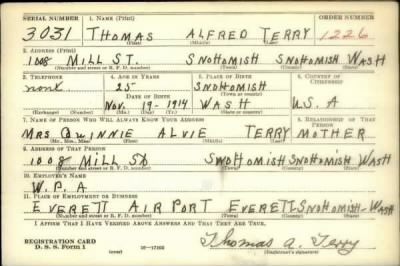 SERIAL NUMBER 1. NAME (Print) ORDER NUMBER
3031 THOMAS ALFRED TERRY 1226
(First) (Middle) (Last)
2. ADDRESS (Print)
1008 MILL ST. SNOHOMISH SNOHOMISH WASH
(Number and street or R. F. D. number) (Town) (County) (State)
3. TELEPHONE 4. AGE IN YEARS 5. PLACE OF BIRTH 6. COUNTRY OF CITIZENSHIP
none 25 SNOHOMISH
DATE OF BIRTH (Town or county)
NOV. 19-1914 WASH U.S.A
(Exchange) (Number) (Mo.) (Day) (Yr.) (State or country)
7. NAME OF PERSON WHO WILL ALWAYS KNOW YOUR ADDRESS 8. RELATIONSHIP OF THAT PERSON
MRS QUINNIE ALVIE TERRY MOTHER
(Mr., Mrs., Miss) (First) (Middle) (Last)
9. ADDRESS OF THAT PERSON
1008 MILL St SNOHOMISH SNOHOMISH WASH
(Number and street or R. F. D. number) (Town) (County) (State)
10. EMPLOYER'S NAME
W.P.A
11. PLACE OF EMPLOYMENT OR BUSINESS
EVERETT AIRPORT EVERETT SNOHOMISH-WASH
(Number and street or R. F. D. number) (Town) (County) (State)
I AFFIRM THAT I HAVE VERIFIED ABOVE ANSWERS AND THAT THEY ARE TRUE.
REGISTRATION CARD
D. S. S. Form 1 (over) 16-17105 Thomas A. Terry
(Registrant's signature)